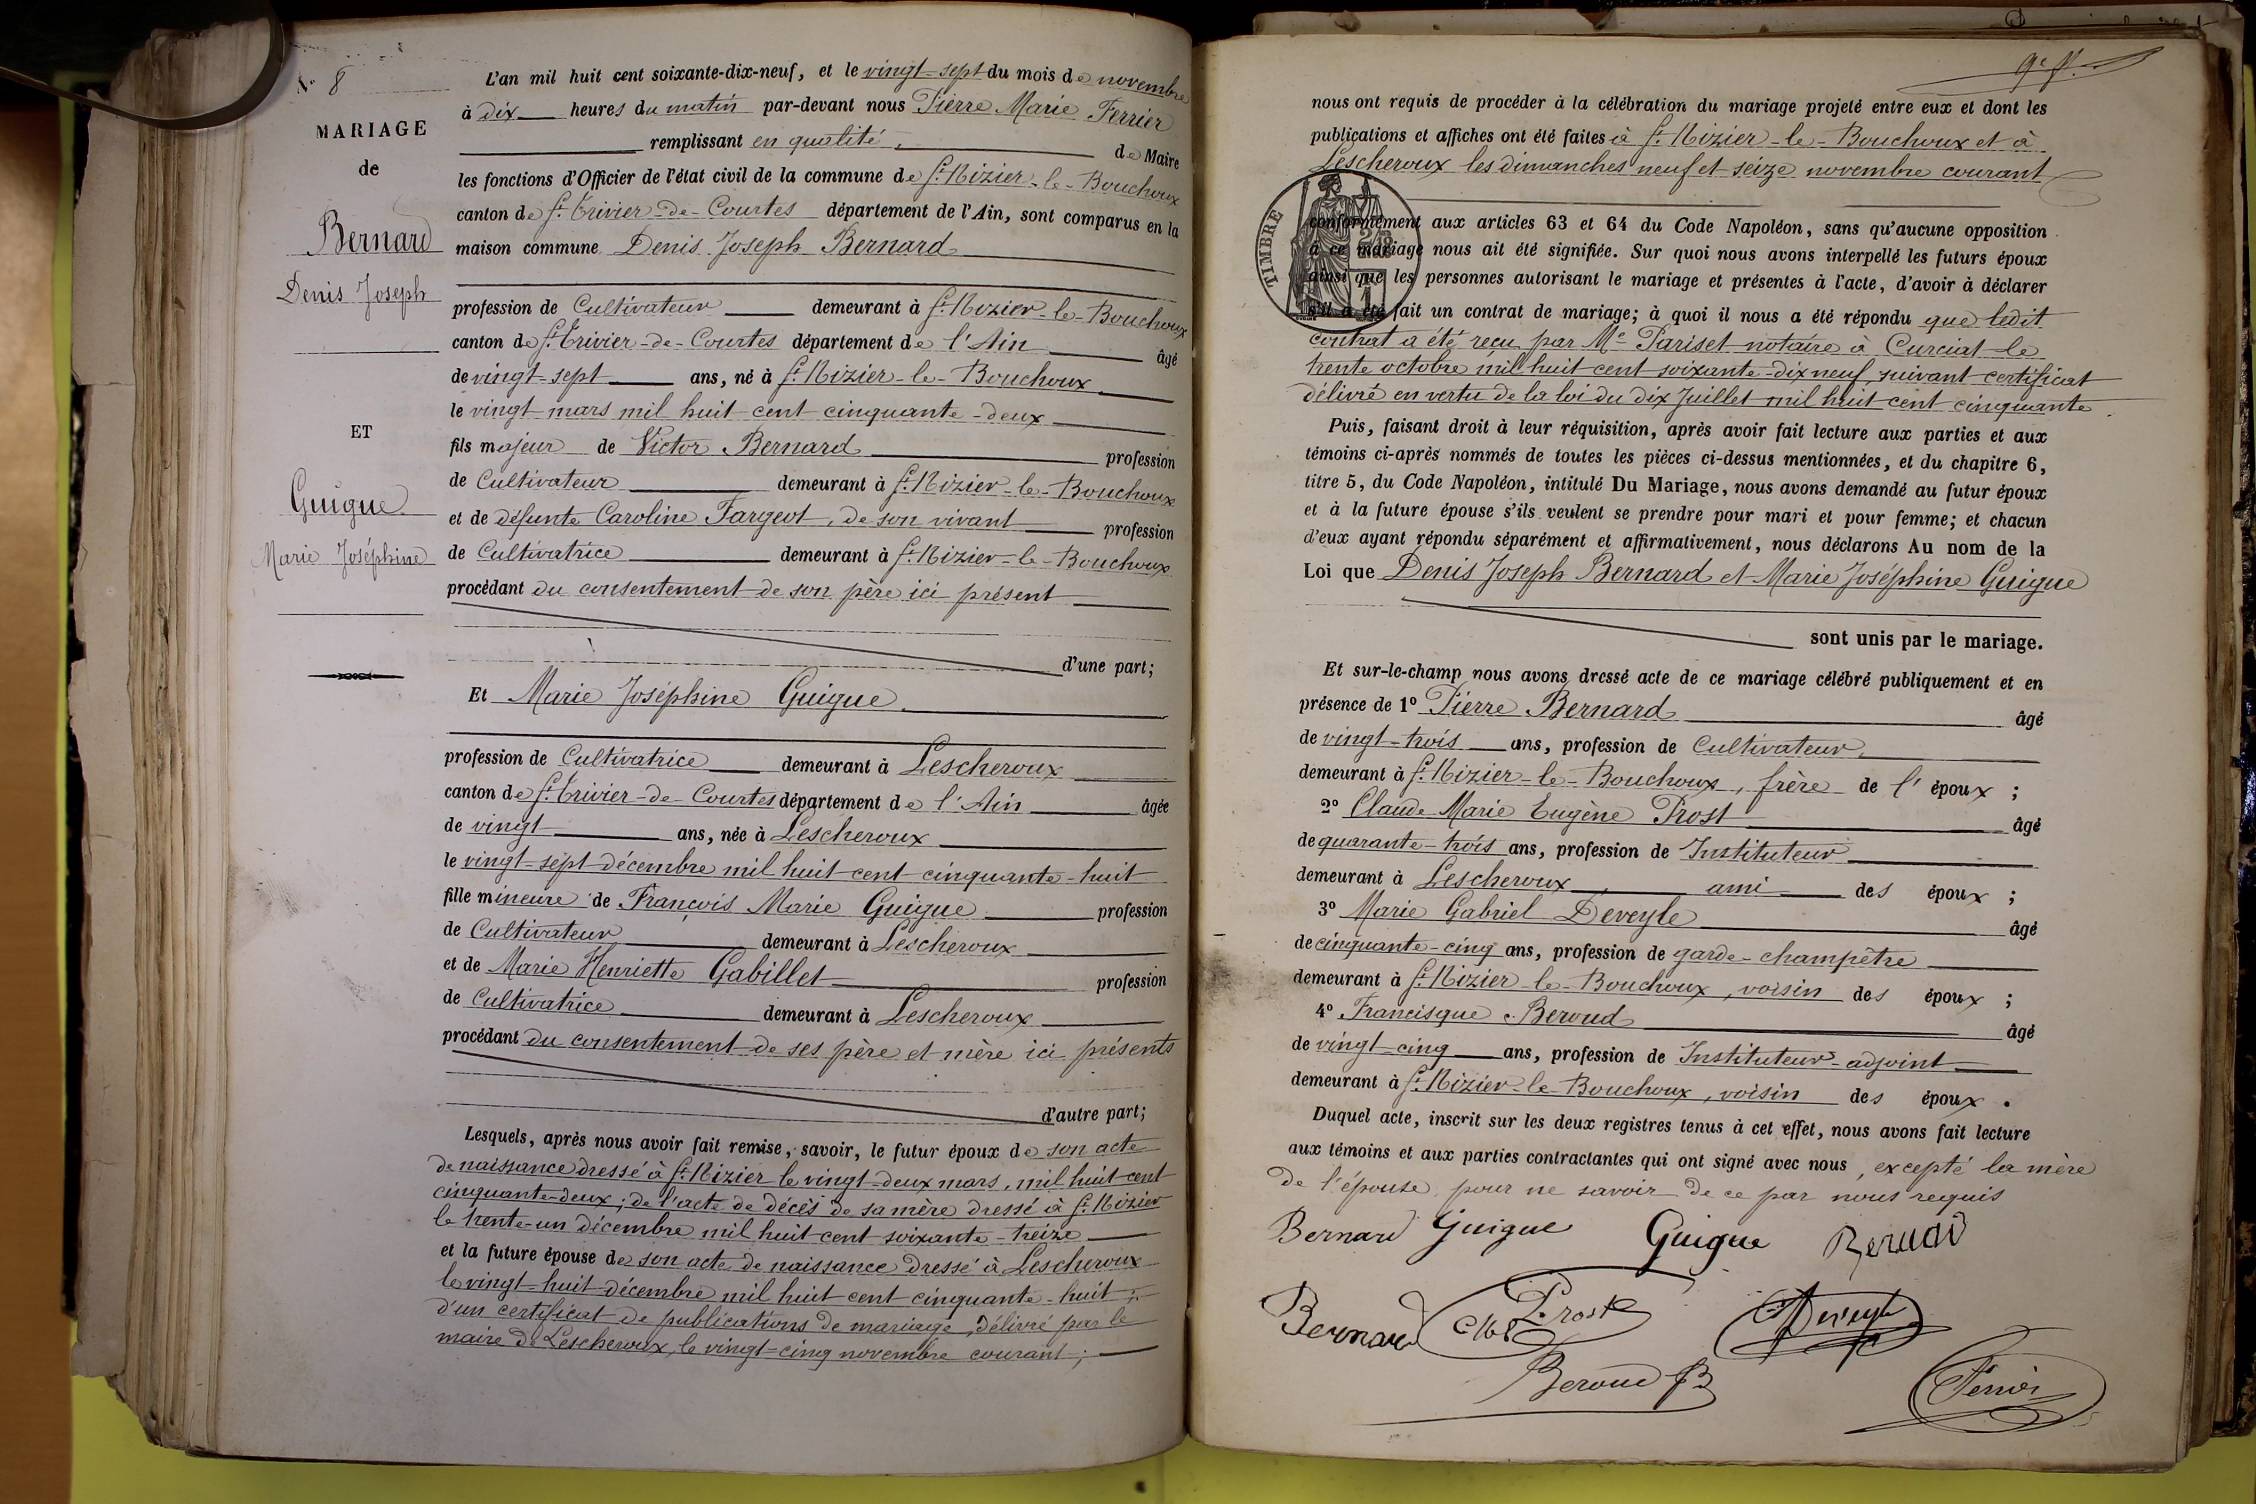 N° 8
MARIAGE
de
Bernard
Denis Joseph
ET
Guigue
Marie Joséphine
L'an mil huit cent soixante-dix-neuf, et le vingt-sept du mois de novembre
à dix heures du matin par-devant nous Pierre Marie Ferrier
remplissant en qualité de Maire
les fonctions d'Officier de l'état civil de la commune de St. Nizier-le-Bouchoux
canton de St. Trivier-de-Courtes département de l'Ain, sont comparus en la
maison commune Denis Joseph Bernard
profession de Cultivateur demeurant à St. Nizier-le-Bouchoux
canton de St. Trivier-de-Courtes département de l'Ain âgé
de vingt-sept ans, né à St. Nizier-le-Bouchoux
le vingt mars mil huit cent cinquante-deux
fils majeur de Victor Bernard profession
de Cultivateur demeurant à St. Nizier-le-Bouchoux
et de défunte Caroline Fargeot, de son vivant profession
de Cultivatrice demeurant à St. Nizier-le-Bouchoux
procédant du consentement de son père ici présent
d'une part;
Et Marie Joséphine Guigue
profession de Cultivatrice demeurant à Lescheroux
canton de St. Trivier-de-Courtes département de l'Ain âgée
de vingt ans, née à Lescheroux
le vingt-sept décembre mil huit cent cinquante-huit
fille mineure de François Marie Guigue profession
de Cultivateur demeurant à Lescheroux
et de Marie Henriette Gabillet profession
de Cultivatrice demeurant à Lescheroux
procédant du consentement de ses père et mère ici présents
d'autre part;
Lesquels, après nous avoir fait remise, savoir, le futur époux de son acte
de naissance dressé à St. Nizier le vingt-deux mars, mil huit cent
cinquante-deux; de l'acte de décès de sa mère dressé à St. Nizier
le trente-un décembre mil huit cent soixante-treize
et la future épouse de son acte de naissance dressé à Lescheroux
le vingt-huit décembre mil huit cent cinquante-huit;
d'un certificat de publications de mariage, délivré par le
maire de Lescheroux, le vingt-cinq novembre courant;
9e f.
nous ont requis de procéder à la célébration du mariage projeté entre eux et dont les
publications et affiches ont été faites à St. Nizier-le-Bouchoux et à
Lescheroux les dimanches neuf et seize novembre courant
TIMBRE
conformément aux articles 63 et 64 du Code Napoléon, sans qu'aucune opposition
à ce mariage nous ait été signifiée. Sur quoi nous avons interpellé les futurs époux
ainsi que les personnes autorisant le mariage et présentes à l'acte, d'avoir à déclarer
s'il a été fait un contrat de mariage; à quoi il nous a été répondu que ledit
contrat a été reçu par Me Pariset notaire à Curciat le
trente octobre mil huit cent soixante-dix neuf, suivant certificat
délivré en vertu de la loi du dix Juillet mil huit cent cinquante.
Puis, faisant droit à leur réquisition, après avoir fait lecture aux parties et aux
témoins ci-après nommés de toutes les pièces ci-dessus mentionnées, et du chapitre 6,
titre 5, du Code Napoléon, intitulé Du Mariage, nous avons demandé au futur époux
et à la future épouse s'ils veulent se prendre pour mari et pour femme; et chacun
d'eux ayant répondu séparément et affirmativement, nous déclarons Au nom de la
Loi que Denis Joseph Bernard et Marie Joséphine Guigue
sont unis par le mariage.
Et sur-le-champ nous avons dressé acte de ce mariage célébré publiquement et en
présence de 1° Pierre Bernard âgé
de vingt-trois ans, profession de Cultivateur,
demeurant à St. Nizier-le-Bouchoux, frère de l'époux;
2° Claude Marie Eugène Prost âgé
de quarante-trois ans, profession de Instituteur
demeurant à Lescheroux, ami des époux;
3° Marie Gabriel Deveyle âgé
de cinquante-cinq ans, profession de garde-champêtre
demeurant à St. Nizier-le-Bouchoux, voisin des époux;
4° Francisque Beroud âgé
de vingt-cinq ans, profession de Instituteur-adjoint
demeurant à St. Nizier-le-Bouchoux, voisin des époux.
Duquel acte, inscrit sur les deux registres tenus à cet effet, nous avons fait lecture
aux témoins et aux parties contractantes qui ont signé avec nous, excepté la mère
de l'épouse pour ne savoir de ce par nous requis
Bernard Guigue Guigue Bernard
Bernard Prost Deveyle
Beroud Ferrier